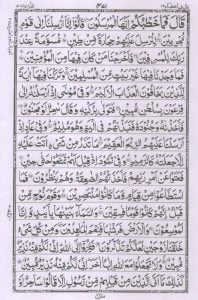 قَالَ فَمَا خَطْبُكُمْ اَيُّهَا الْمُرْسَلُوْنَ قَالُوْۤا اِنَّاۤ اُرْسِلْنَاۤ اِلٰى قَوْمٍ
مُّجْرِمِيْنَ لِنُرْسِلَ عَلَيْهِمْ حِجَارَةً مِّنْ طِيْنٍ مُّسَوَّمَةً عِنْدَ
رَبِّكَ لِلْمُسْرِفِيْنَ فَاَخْرَجْنَا مَنْ كَانَ فِيْهَا مِنَ الْمُؤْمِنِيْنَ
فِرْعَوْنَ بِسُلْطٰنٍ مُّبِيْنٍ فَتَوَلّٰى بِرُكْنِهٖ وَقَالَ سٰحِرٌ اَوْ مَجْنُوْنٌ
فَاَخَذْنٰهُ وَجُنُوْدَهٗ فَنَبَذْنٰهُمْ فِي الْيَمِّ وَهُوَ مُلِيْمٌ وَفِيْ عَادٍ اِذْ
اَرْسَلْنَا عَلَيْهِمُ الرِّيْحَ الْعَقِيْمَ مَا تَذَرُ مِنْ شَيْءٍ اَتَتْ عَلَيْهِ اِلَّا
جَعَلَتْهُ كَالرَّمِيْمِ وَفِيْ ثَمُوْدَ اِذْ قِيْلَ لَهُمْ تَمَتَّعُوْا حَتّٰى حِيْنٍ
فَعَتَوْا عَنْ اَمْرِ رَبِّهِمْ فَاَخَذَتْهُمُ الصّٰعِقَةُ وَهُمْ يَنْظُرُوْنَ فَمَا
اسْتَطَاعُوْا مِنْ قِيَامٍ وَّمَا كَانُوْا مُنْتَصِرِيْنَ وَقَوْمَ نُوْحٍ مِّنْ
قَبْلُ اِنَّهُمْ كَانُوْا قَوْمًا فٰسِقِيْنَ وَالسَّمَآءَ بَنَيْنٰهَا بِاَيْىدٍ وَّاِنَّا
لَمُوْسِعُوْنَ وَالْاَرْضَ فَرَشْنٰهَا فَنِعْمَ الْمٰهِدُوْنَ وَمِنْ كُلِّ شَيْءٍ
خَلَقْنَا زَوْجَيْنِ لَعَلَّكُمْ تَذَكَّرُوْنَ فَفِرُّوْۤا اِلَى اللّٰهِ اِنِّيْ لَكُمْ مِّنْهُ نَذِيْرٌ
مُّبِيْنٌ وَلَا تَجْعَلُوْا مَعَ اللّٰهِ اِلٰهًا اٰخَرَ اِنِّيْ لَكُمْ مِّنْهُ نَذِيْرٌ مُّبِيْنٌ